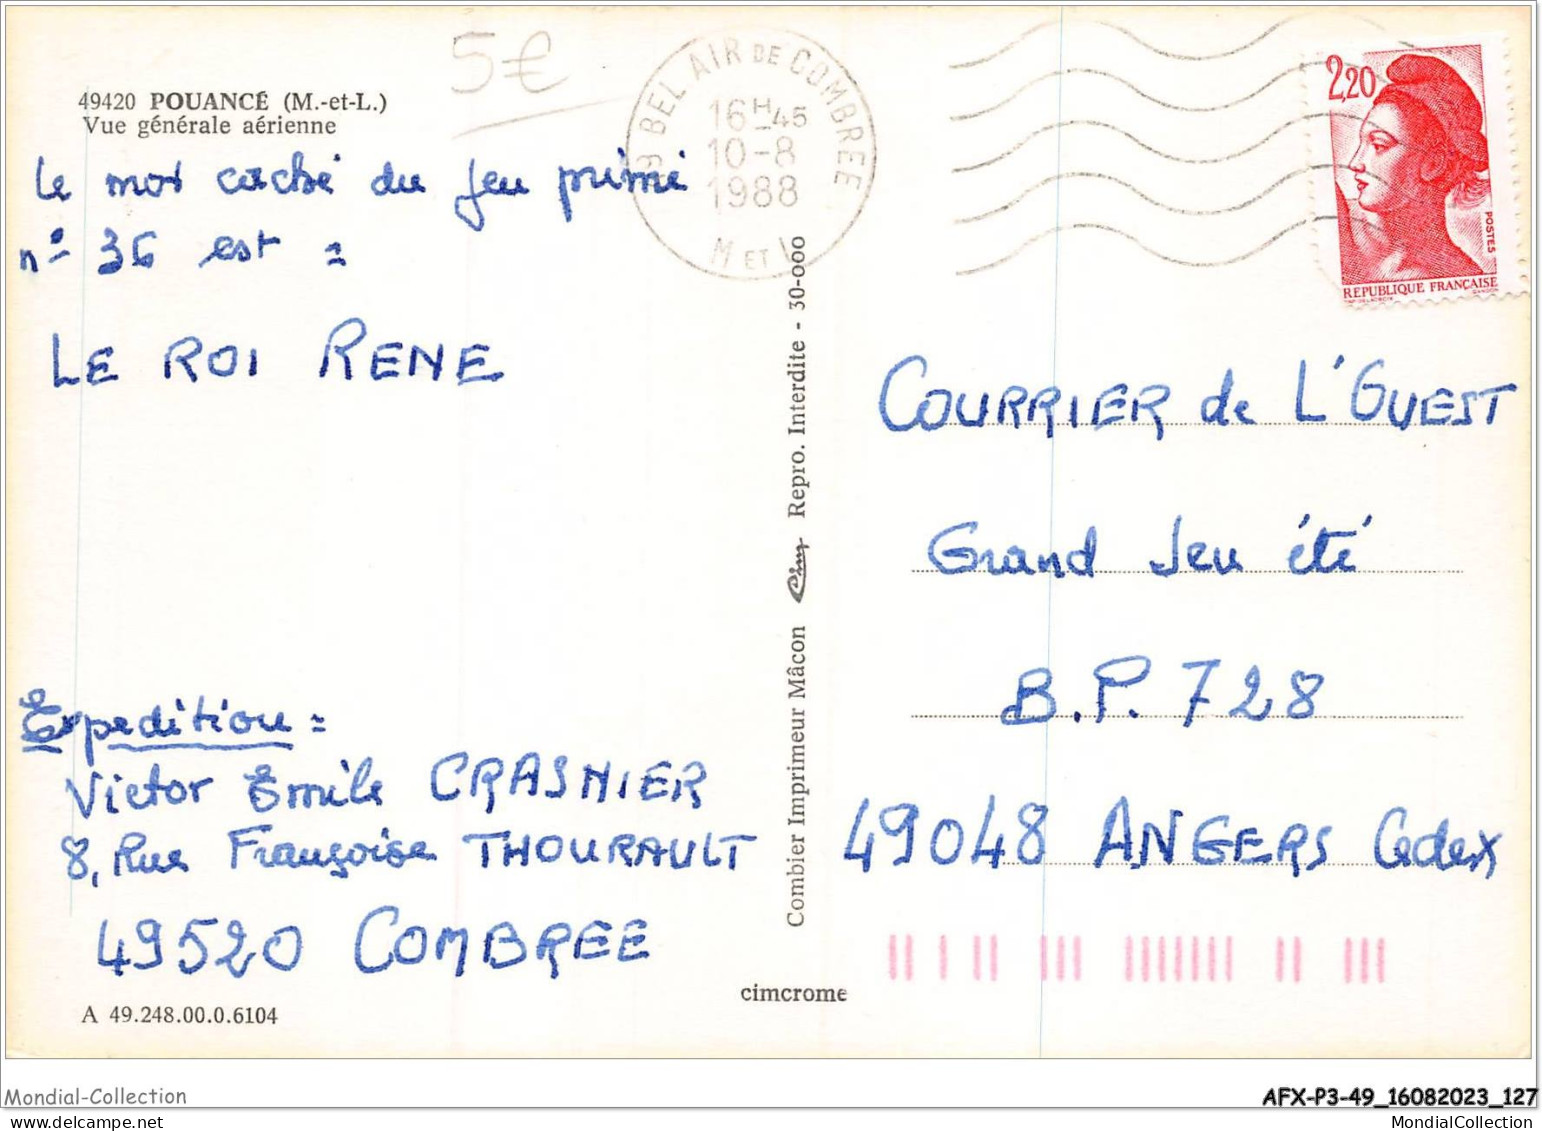 49420 POUANCÉ (M.-et-L.)
Vue générale aérienne
5€
BEL AIR DE COMBREE
16H-45
10-8
1988
M ET L
2,20
POSTES
REPUBLIQUE FRANÇAISE
Le mot caché du jeu primé
n° 36 est =
LE ROI RENE
Expedition =
Victor Emile CRASNIER
8, Rue Françoise THOURAULT
49520 COMBREE
A 49.248.00.0.6104
Combier Imprimeur Mâcon Cim Repro. Interdite - 30-000
cimcrome
COURRIER de L'OUEST
Grand Jeu été
B.P. 728
49048 ANGERS Cedex
Mondial-Collection
AFX-P3-49_16082023_127
MondialCollection